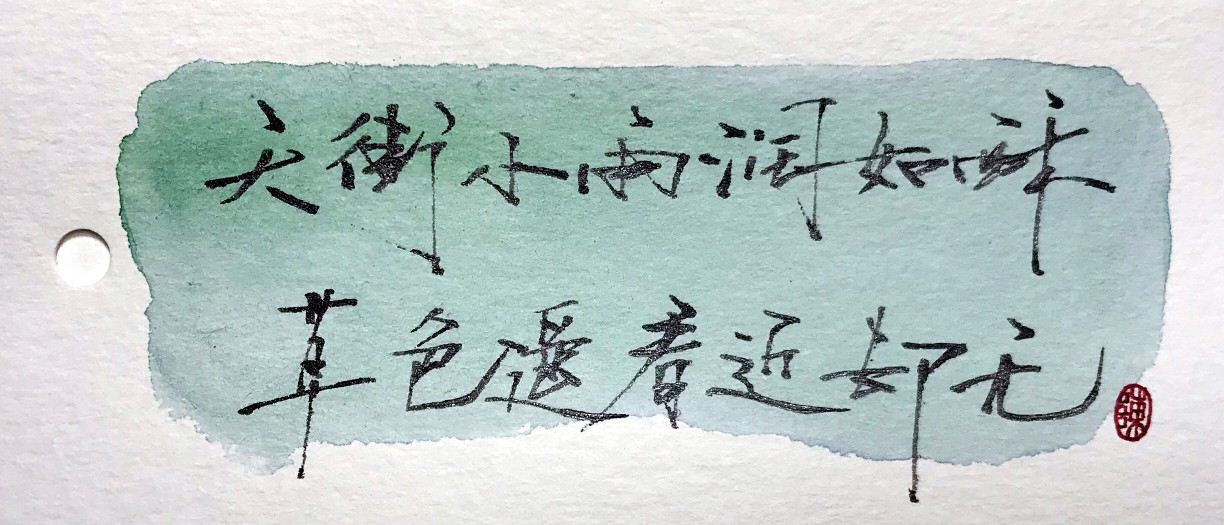 天街小雨润如酥
草色遥看近却无